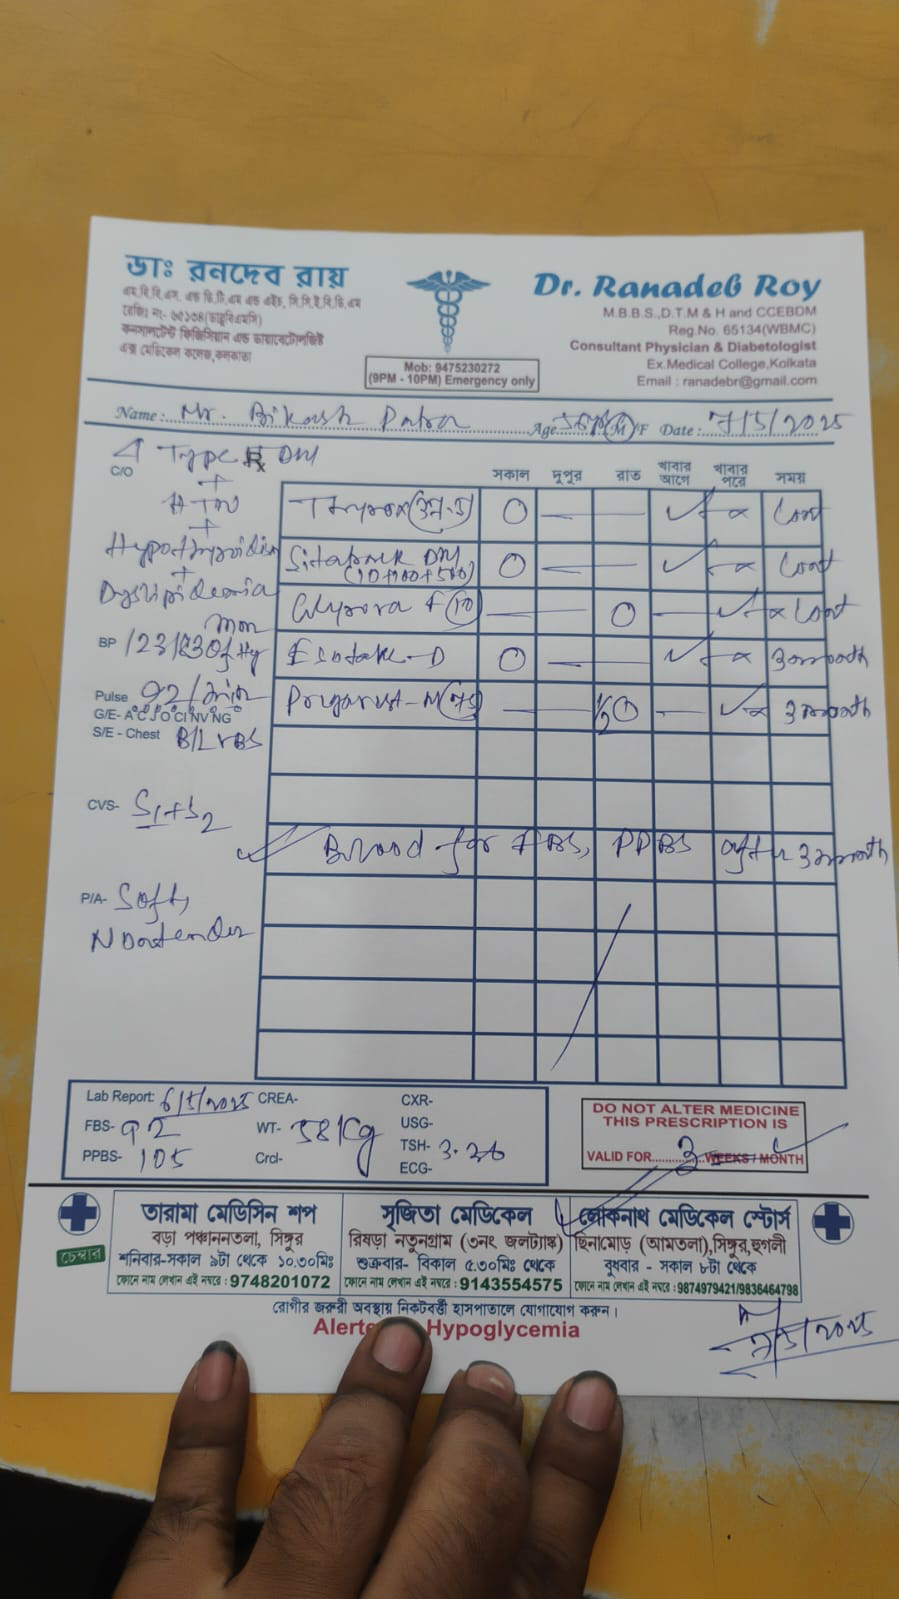 ডাঃ রনদেব রায়
এম.বি.বি.এস, এন্ড ডি.টি.এম এন্ড এইচ, সি.সি.ই.বি.ডি.এম
রেজিঃ নং- ৬৫১৩৪(ডাব্লুবিএমসি)
কনসালটেন্ট ফিজিসিয়ান এন্ড ডায়াবেটোলজিষ্ট
এক্স মেডিকেল কলেজ,কলকাতা
Mob: 9475230272
(9PM - 10PM) Emergency only
Dr. Ranadeb Roy
M.B.B.S.,D.T.M & H and CCEBDM
Reg.No. 65134(WBMC)
Consultant Physician & Diabetologist
Ex.Medical College,Kolkata
Email : ranadebr@gmail.com
Name: Mr. Bikash Patra Age M/F Date: 7/5/2025
C/O Type DM
+
HTN
+
Hypothyroidism
+
Dyslipidemia
BP 123/83 mm of Hg
Pulse 92/min
G/E- A C J O CI NV NG
S/E - Chest B/L VBS
CVS- S1+S2
P/A- Soft,
Nontender
সকাল দুপুর রাত খাবার আগে খাবার পরে সময়
Thyrox (37.5) Cont
DM
(10+100+500) Cont
F (10) Cont
D 3 month
M (75) 1/2 3 month
Blood for FBS, PPBS after 3 month
Lab Report: 6/5/2025 CREA- CXR-
FBS- 92 WT- 58 Kg USG-
PPBS- 105 Crcl- TSH- 3.26
ECG-
DO NOT ALTER MEDICINE
THIS PRESCRIPTION IS
VALID FOR 3 WEEKS / MONTH
চেম্বার
তারামা মেডিসিন শপ
বড়া পঞ্চাননতলা, সিঙ্গুর
শনিবার-সকাল ৯টা থেকে ১০.৩০মিঃ
ফোনে নাম লেখান এই নম্বরে : 9748201072
সৃজিতা মেডিকেল
রিষড়া নতুনগ্রাম (৩নং জলট্যাঙ্ক)
শুক্রবার- বিকাল ৫.৩০মিঃ থেকে
ফোনে নাম লেখান এই নম্বরে : 9143554575
লোকনাথ মেডিকেল স্টোর্স
ছিনামোড় (আমতলা),সিঙ্গুর,হুগলী
বুধবার - সকাল ৮টা থেকে
ফোনে নাম লেখান এই নম্বরে : 9874979421/9836464798
রোগীর জরুরী অবস্থায় নিকটবর্তী হাসপাতালে যোগাযোগ করুন।
Hypoglycemia
7/5/2025